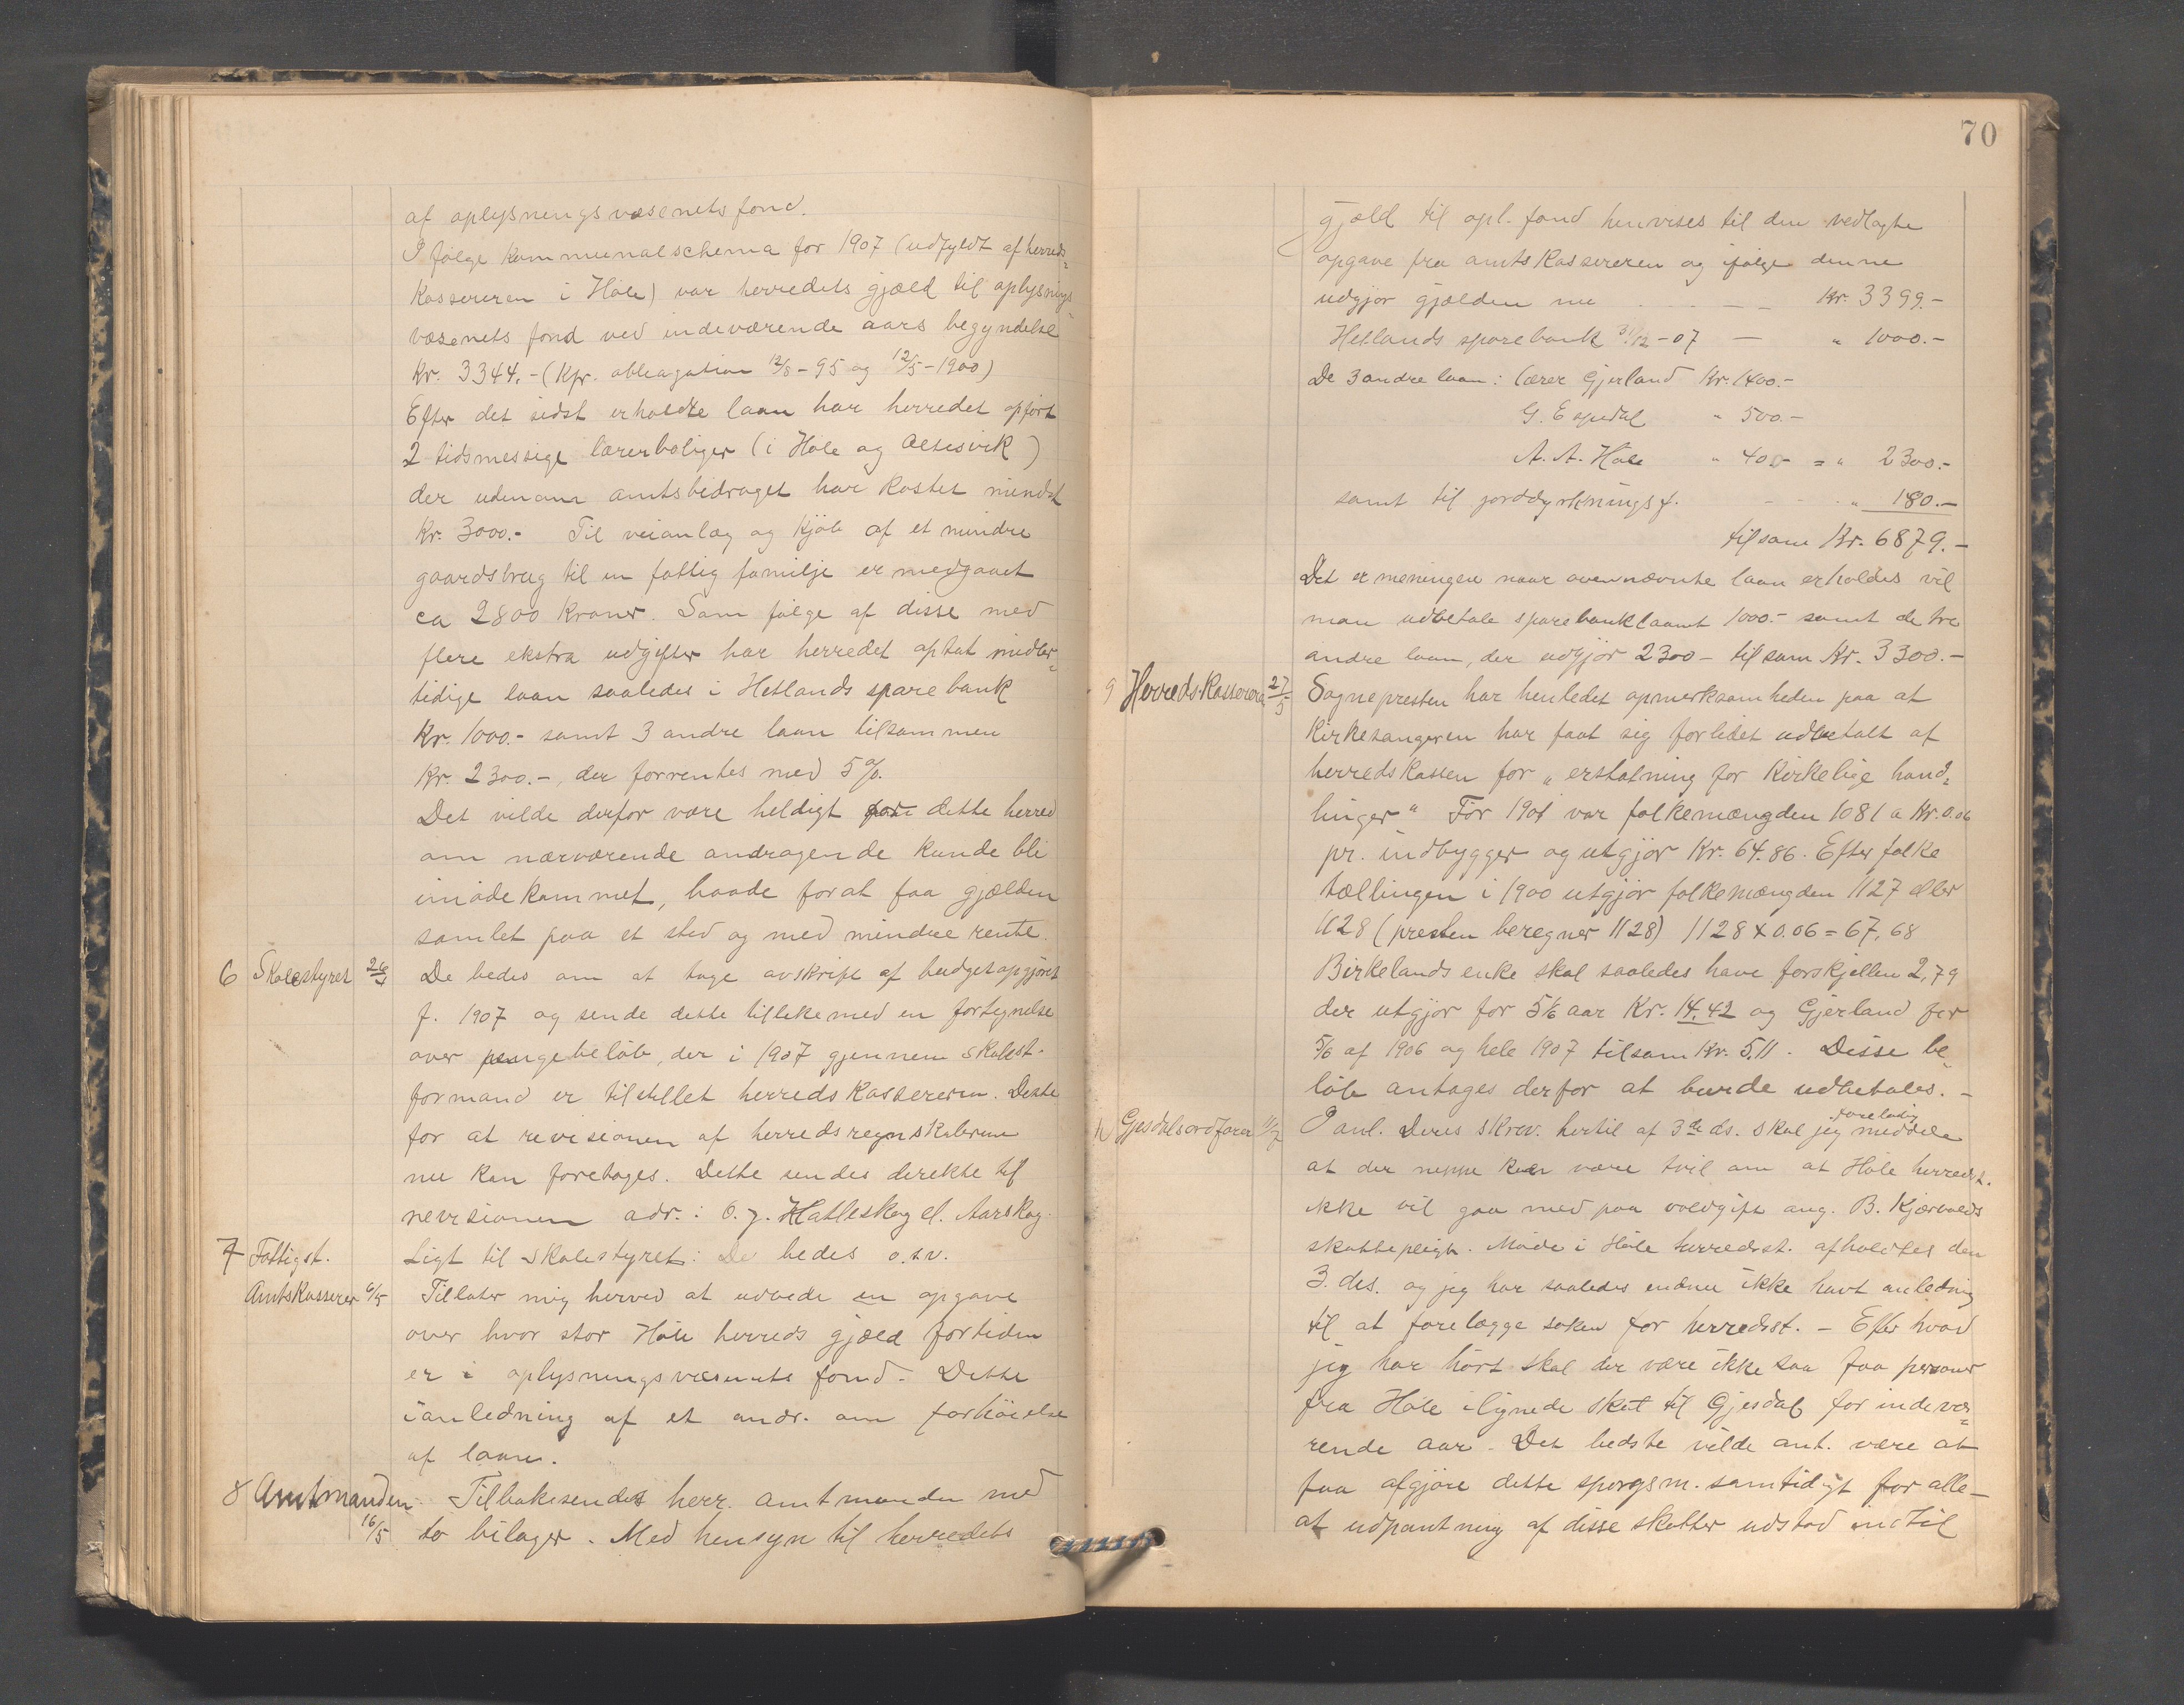 af oplysningsvæsenets fond.
I følge kommunalschema for 1907 (udfyldt af herreds-
kassereren i Høle) var herredets gjæld til oplysnings-
væsenets fond ved indeværende aars begyndelse
Kr. 3344.- (Kfr. obligation 12/8-95 og 12/5-1900)
Efter det sidst erholdte laan har herredet opført
2 tidsmessige lærerboliger (i Høle og Oltesvik)
der udenom amtsbidraget har kostet mindst
Kr. 3000.- Til veianlæg og kjøb af et mindre
gaardsbrug til en fattig familje er medgaaet
ca 2800 kroner. Som følge af disse med
flere ekstra udgifter har herredet optat midler-
tidige laan saaledes i Hetlands sparebank
Kr. 1000.- samt 3 andre laan tilsammen
Kr. 2300.-, der forrentes med 5%.
Det vilde derfor være heldigt for dette herred
om nærværende andragende kunde bli
imødekommet, baade forat faa gjælden
samlet paa et sted og med mindre rente.
6 Skolestyret 26/4 De bedes om at tage avskrift af budgetopgjøret
f. 1907 og sende dette tillikemed en fortegnelse
over pengebeløb, der i 1907 gjennem skolest.
formand er tilstillet herredskassereren. Dette
for at revisionen af herredsregnskaberne
nu kan foretages. Dette sendes direkte til
revisionen adr.: O. J. Hatleskog el. Aarskog.
7 Fattigst. Ligt til skolestyret: De bedes o.s.v.
Amtskasserer 6/5 Tillater mig herved at udbede en opgave
over hvor stor Høle herreds gjæld fortiden
er i oplysningsvæsenets fond. Dette
i anledning af et andr. om forhøielse
af laan.
8 Amtmanden Tilbakesendes herr. amtmanden med
16/5 to bilager. Med hensyn til herredets
70
gjæld til opl. fond henvises til den vedlagte
opgave fra amtskassereren og ifølge denne
udgjør gjælden nu — Kr. 3399.-
Hetlands sparebank 31/12-07 — " 1000.-
De 3 andre laan: lærer Gjerland Kr. 1400.-
G. Espedal " 500.-
A. A. Høle " 400- = " 2300.-
samt til jorddyrkningsf. " 180.-
tilsam Kr. 6879.-
Det er meningen naar ovennævnte laan erholdes vil
man udbetale sparebanklaanet 1000.- samt de tre
andre laan, der udgjør 2300- tilsam Kr. 3300.-
9 Herredskasserer 27/5 Sognepresten har henledet opmerksomheden paa at
Kirkesangeren har faat sig forlidet udbetalt af
herredskassen for "erstatning for kirkelige hand-
linger" For 1901 var folkemængden 1081 a Kr. 0.06
pr. indbygger og utgjør Kr. 64.86. Efter folke
tællingen i 1900 utgjør folkemængden 1127 eller
1128 (presten beregner 1128) 1128 x 0.06 = 67,68
Birkelands enke skal saaledes have forskjellen 2,79
der utgjør for 5 1/6 aar Kr. 14,42 og Gjerland for
5/6 af 1906 og hele 1907 tilsam Kr. 5,11. Disse be-
løb antages derfor at burde udbetales. -
10 Gjesdals ordfører 11/7 I anl. Deres skrv. hertil af 3de ds. skal jeg foreløbig meddele
at der neppe kan være tvil om at Høle herredst.
ikke vil gaa med paa voldgift ang. B. Kjærvolds
skattepligt. Møde i Høle herredst. afholdtes den
3. ds. og jeg har saaledes endnu ikke havt anledning
til at forelægge saken for herredst. - Efter hvad
jeg har hørt skal der være ikke saa faa personer
fra Høle ilignede skat til Gjesdal for indevæ-
rende aar. Det bedste vilde ant. være at
faa afgjøre dette spørgsm. samtidigt for alle -
at udpantning af disse skatter udstod indtil